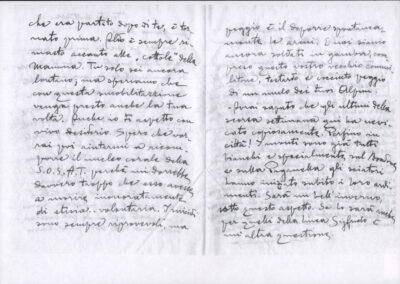 che era partito dopo di te, è tor-
nato prima. Elio è sempre ri-
masto accanto alle "cottole" della
Mamma. Tu solo sei ancora
lontano, ma speriamo che
con questa smobilitazione
venga presto anche la tua
volta. Anche io ti aspetto con
vivo desiderio. Spero che vor-
rai poi aiutarmi a ricom-
porre il nucleo corale della
S.O.S.A.T. perché mi dorrebbe
davvero troppo che esso avesse
a morire immaturamente
di etisia.. volontaria. I nemici
sono sempre rigorosi, ma
peggio è il deporre spontanea-
mente le armi. E noi siamo
ancora soldati in gamba, com-
preso questo vostro vecchio commi-
litone, testardo e cocciuto peggio
di un mulo dei tuoi Alpini.
Avrai saputo che gli ultimi della
scorsa settimana qui ha nevi-
cato copiosamente. Perfino in
città! I monti sono già tutti
bianchi e specialmente sul Bondone
e sulla Paganella gli sciatori
hanno iniziato subito i loro ardi-
menti. Sarà un bell'inverno,
sotto questo aspetto. Se lo sarà anche
per quelli della linea Sigfrido è
un'altra questione.